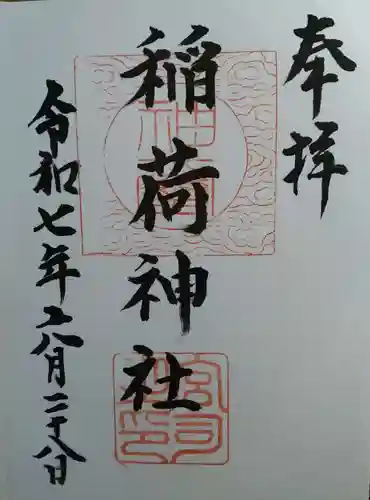 奉拝
稲荷神社
令和七年六月二十八日